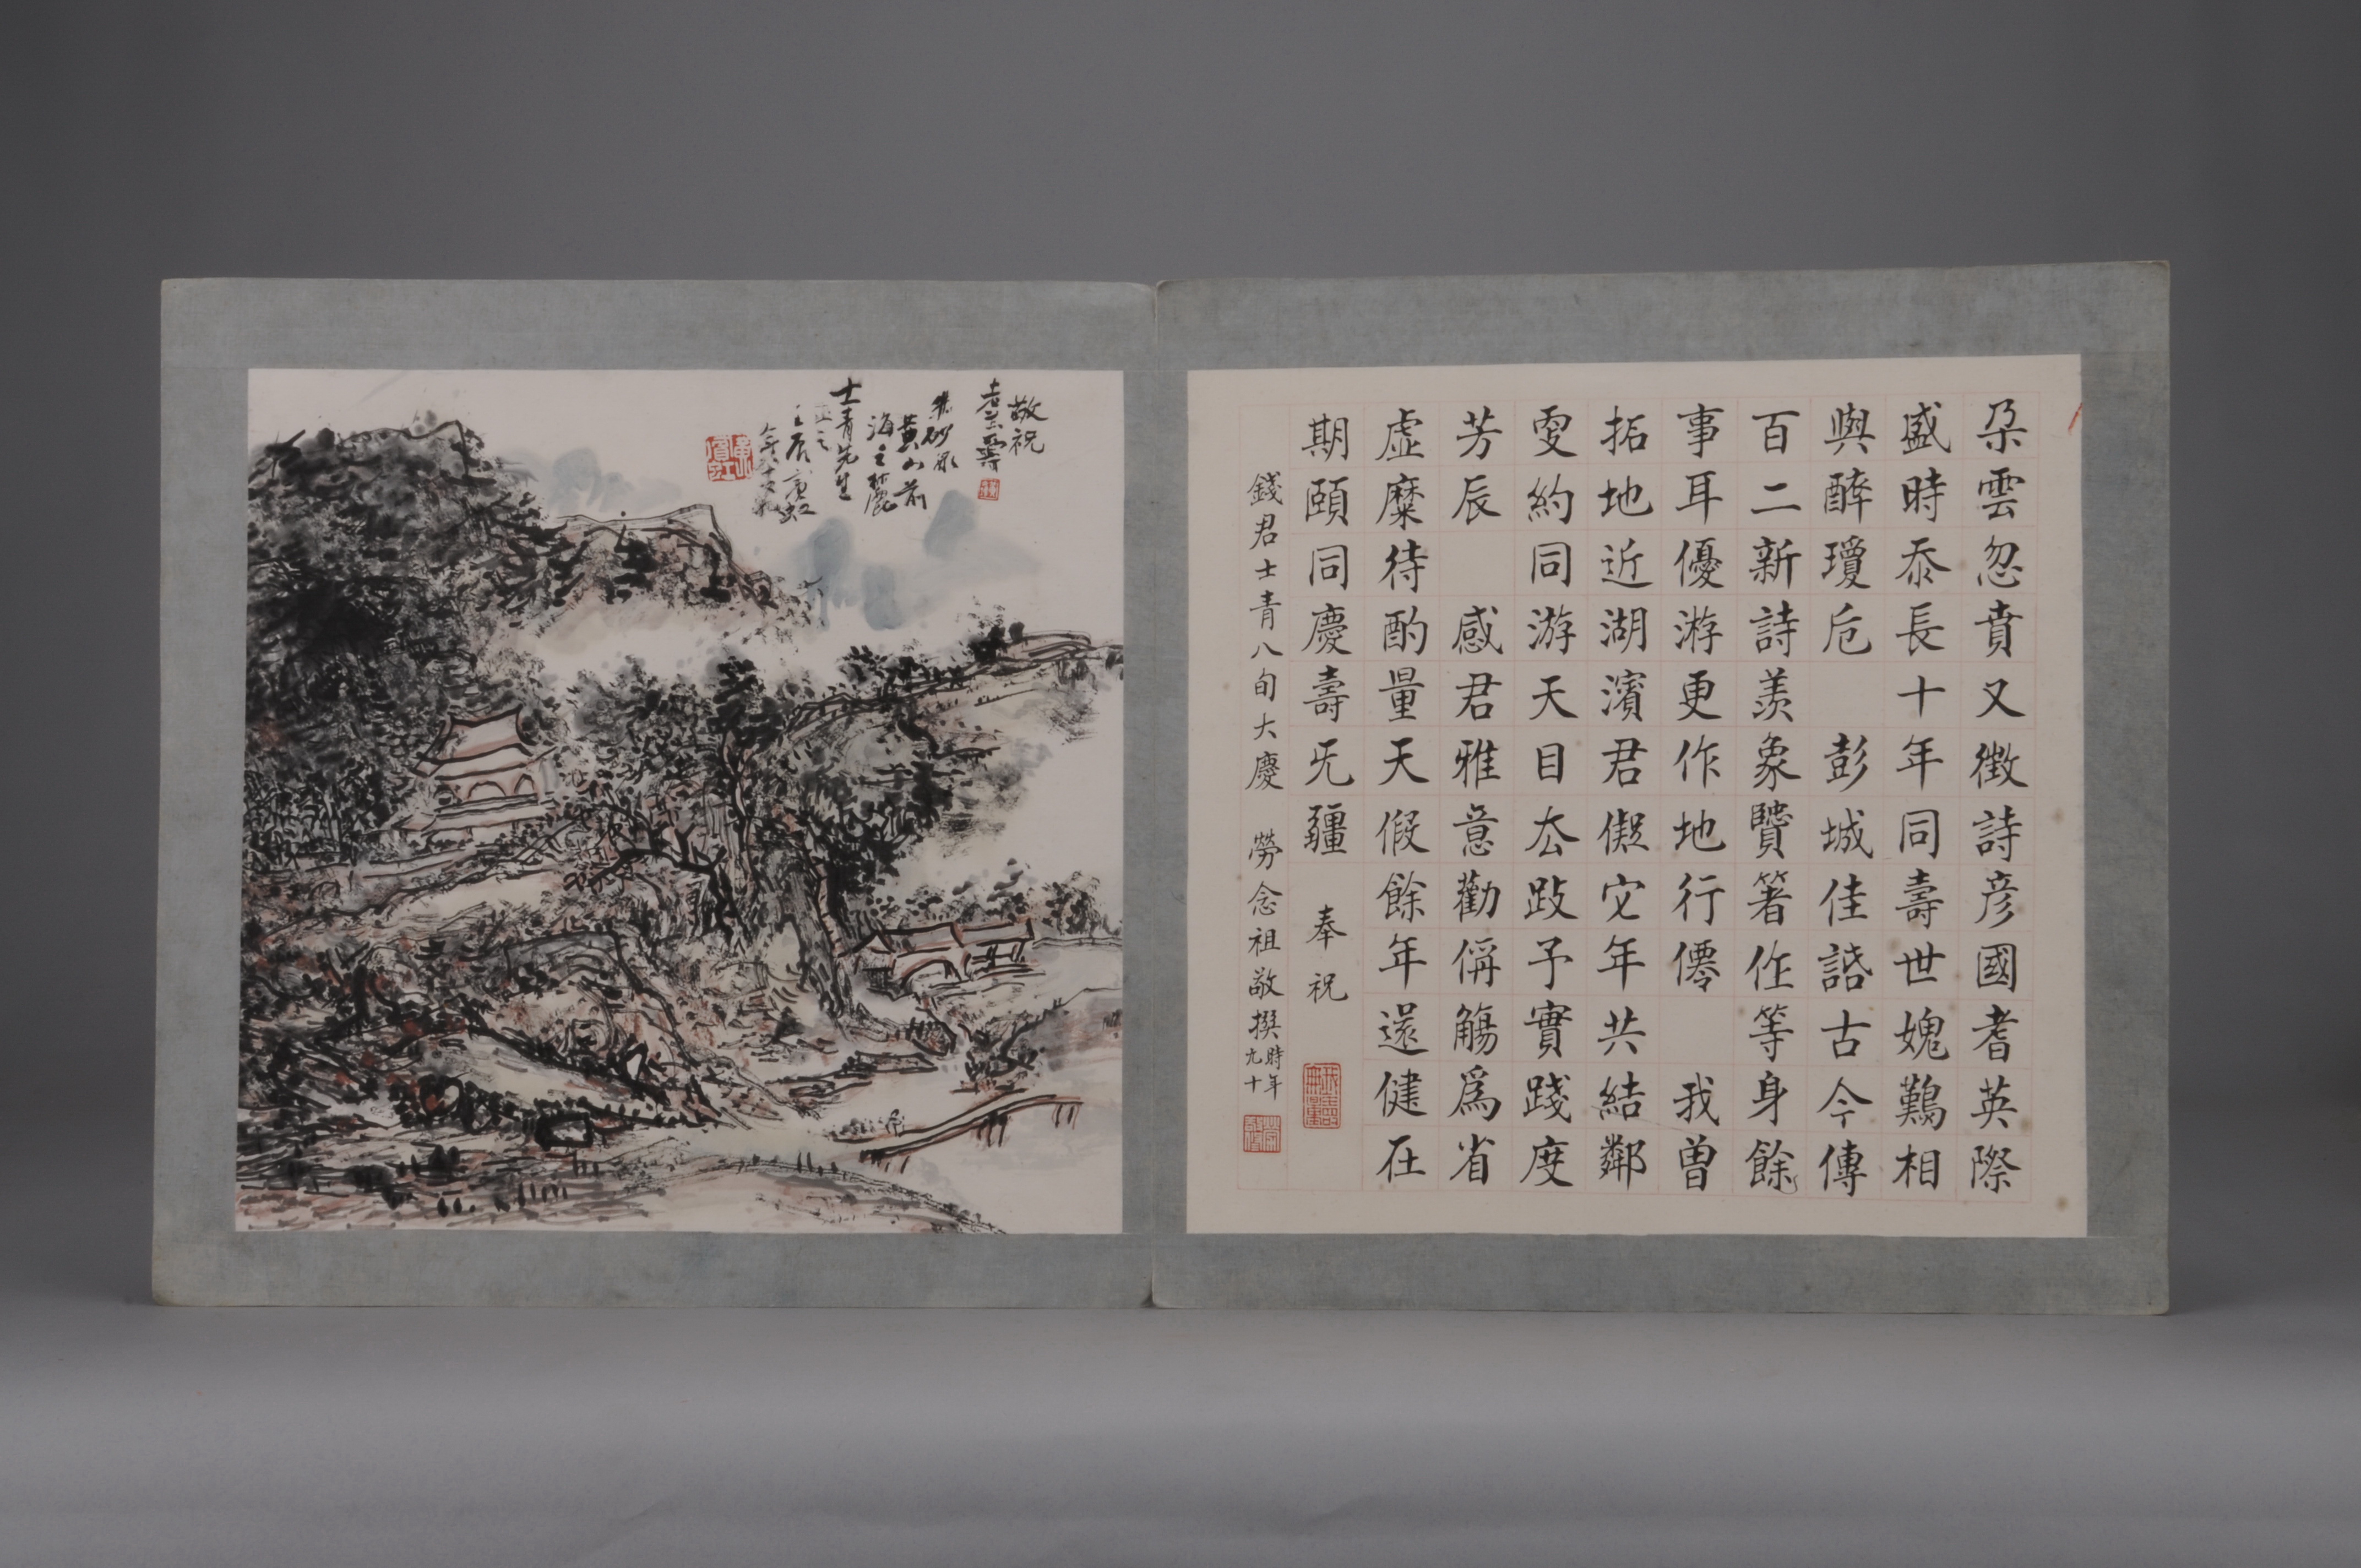 朵雲忽賁又徵詩彦國耆英際
盛時泰長十年同壽世媿鷬相
與醉瓊卮　彭城佳話古今傳
百二新詩羨象贒箸作等身餘
事耳優游更作地行僊　我曾
拓地近湖濱君儗定年共結鄰
雯約同游天目厺跂予實踐度
芳辰　感君雅意勸偁觴爲省
虛糜待酌量天假餘年還健在
期頤同慶壽无疆　奉祝
錢君士青八旬大慶　勞念祖敬撰時年九十
敬祝
耄壽
朱砂泉
黃山前
海之麓
士青先生
正之
壬辰賓虹
年八十九